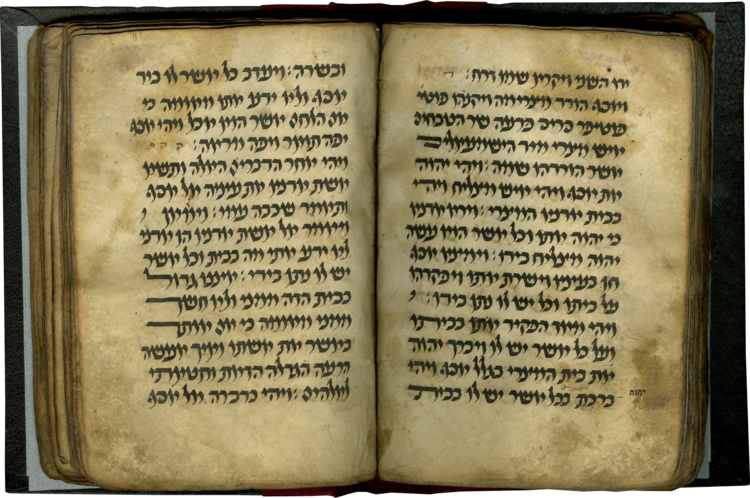 ידו השני ויקרא שמו זרח:
ויוסף הורד מצרימה ויקנהו
פוטיפר סריס פרעה שר הטבחים
איש מצרי מיד הישמעאלים
אשר הורדהו שמה: ויהי יהוה
את יוסף ויהי איש מצליח ויהי
בבית אדניו המצרי: וירא אדניו
כי יהוה אתו וכל אשר הוא עשה
יהוה מצליח בידו: וימצא יוסף
חן בעיניו וישרת אתו ויפקדהו
על ביתו וכל יש לו נתן בידו:
ויהי מאז הפקיד אתו בביתו
ועל כל אשר יש לו ויברך יהוה
את בית המצרי בגלל יוסף ויהי
ברכת בכל אשר יש לו בבית
יהוה
ובשדה: ויעזב כל אשר לו ביד
יוסף ולא ידע אתו מאומה כי
אם הלחם אשר הוא אכל ויהי יוסף
יפה תאר ויפה מראה:
ויהי אחר הדברים האלה ותשא
אשת אדניו את עיניה אל יוסף
ותאמר שכבה עמי: וימאן
ויאמר אל אשת אדניו הן אדני
לא ידע אתי מה בבית וכל אשר
יש לו נתן בידי: איננו גדול
בבית הזה ממני ולא חשך
ממני מאומה כי אם אתך
באשר את אשתו ואיך אעשה
הרעה הגדלה הזאת וחטאתי
לאלהים: ויהי כדברה אל יוסף